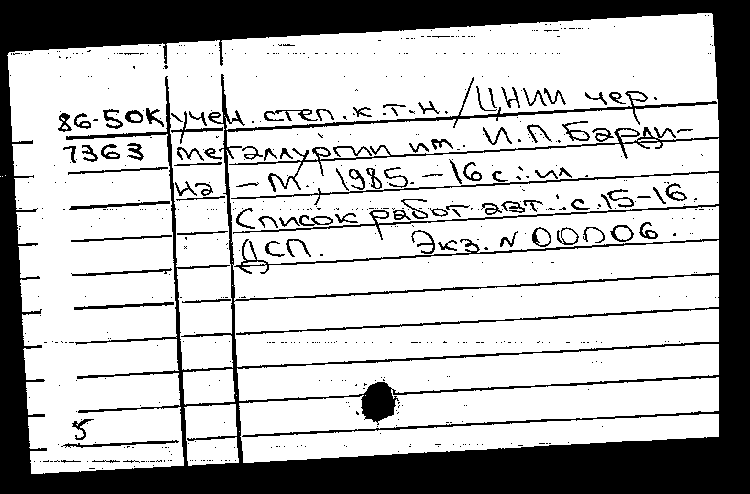 86-50К учен. степ. к.т.н. /ЦНИИ чер.
7363 металлургии им. И.П.Барди-
на - М., 1985. - 16 с.: ил.
Список работ авт.: с.15-16.
ДСП. Экз. N 00006.
5